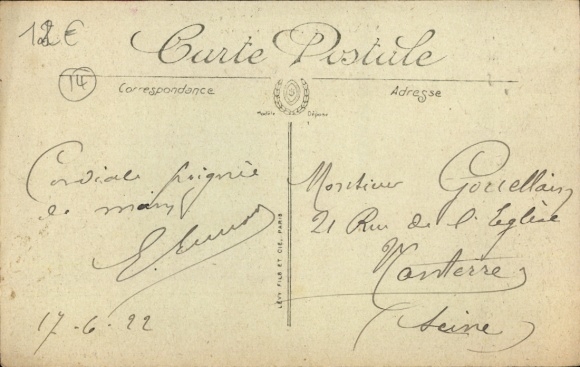 18 €
14
Carte Postale
Correspondance
Adresse
Modèle Déposé
Cordiale poignée
de main
E.
17-6-22
LÉVY FILS ET CIE, PARIS
Monsieur
21 Rue de l'Eglise
Nanterre
(Seine)